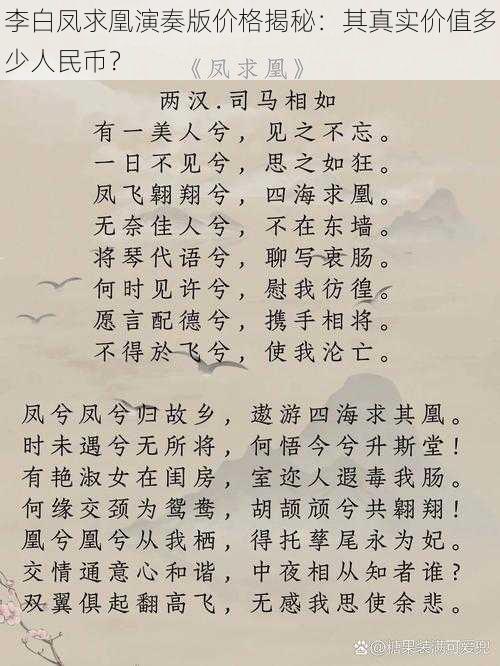 李白凤求凰演奏版价格揭秘：其真实价值多
少人民币？
《凤求凰》
两汉.司马相如
有一美人兮，见之不忘。
一日不见兮，思之如狂。
凤飞翱翔兮，四海求凰。
无奈佳人兮，不在东墙。
将琴代语兮，聊写衷肠。
何时见许兮，慰我彷徨。
愿言配德兮，携手相将。
不得於飞兮，使我沦亡。
凤兮凤兮归故乡，遨游四海求其凰。
时未遇兮无所将，何悟今兮升斯堂！
有艳淑女在闺房，室迩人遐毒我肠。
何缘交颈为鸳鸯，胡颉颃兮共翱翔！
凰兮凰兮从我栖，得托孳尾永为妃。
交情通意心和谐，中夜相从知者谁？
双翼俱起翻高飞，无感我思使余悲。
@糖果装满可爱兜